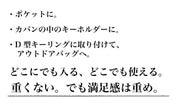 ・ポケットに。
・カバンの中のキーホルダーに。
・D型キーリングに取り付けて、
アウトドアバッグへ。
どこにでも入る、どこでも使える。
重くない。でも満足感は重め。